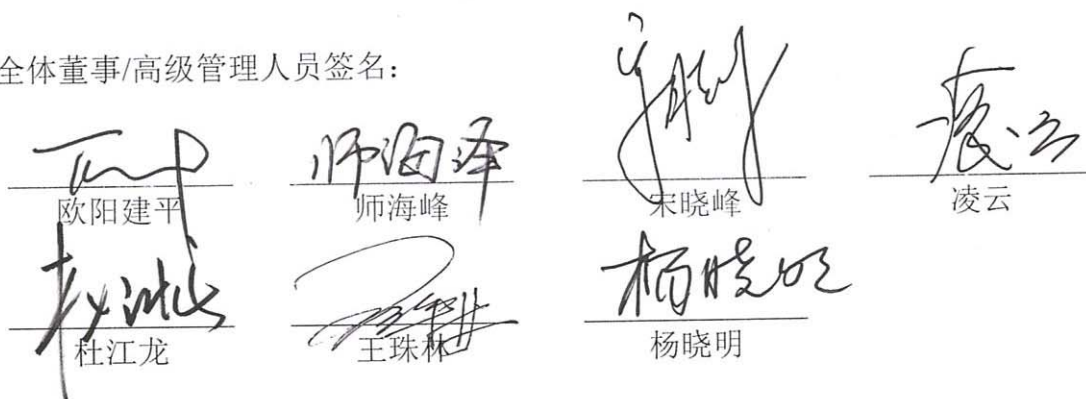 全体董事/高级管理人员签名：
师海泽 凌云
欧阳建平 师海峰 宋晓峰 凌云
杨晓明
杜江龙 王珠林 杨晓明